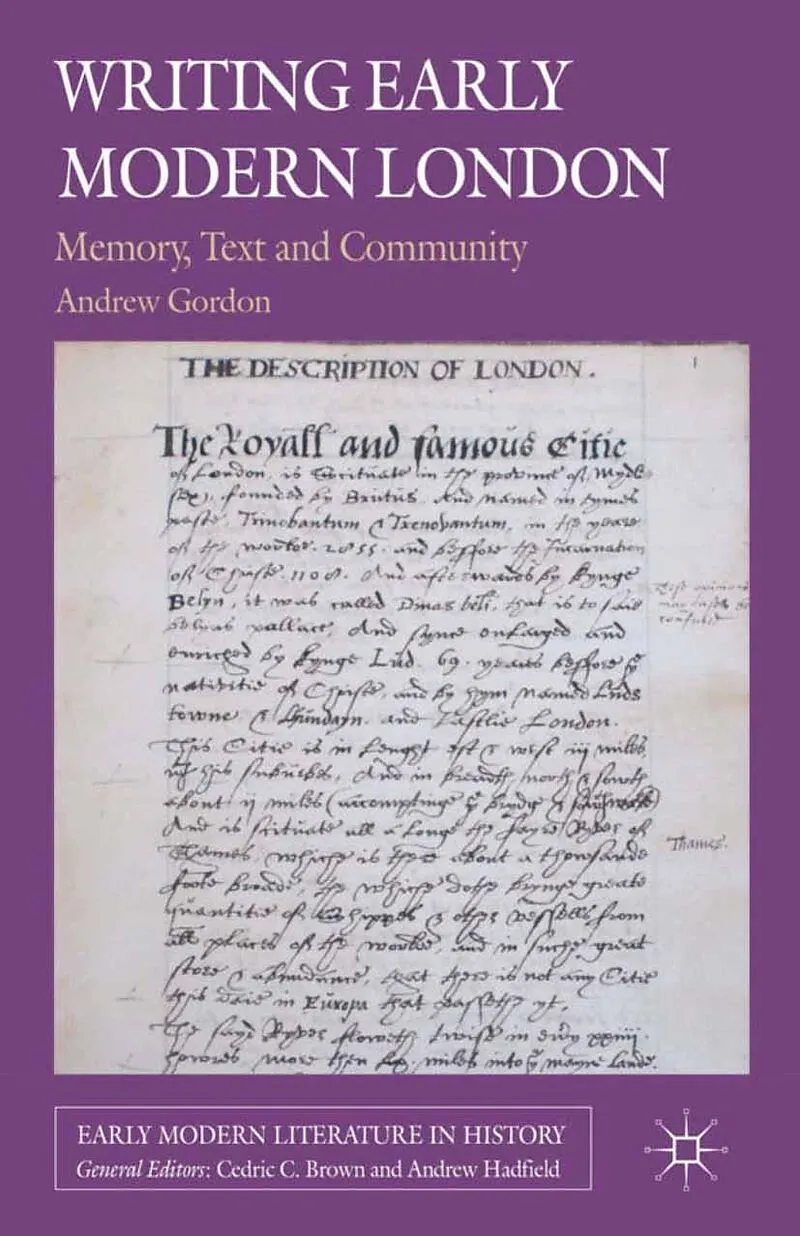 WRITING EARLY
MODERN LONDON
Memory, Text and Community
Andrew Gordon
THE DESCRIPTION OF LONDON.
1
The Royall and famous Citie
of London, is Scituate in the province of Myddle
sex, founded by Brutus. And named in tymes
paste, Trinobantum & Trenovantum, in the yeare
of the worlde. 2855. and beffore the Incarnation
of Christe. 1108. And afterwards by kynge
Belyn, it was called Dinas beli, that is to saie
belyns pallace, And synce enlarged and
enriched by kynge Lud. 69. yeares beffore ye
nativitie of Christe, and by hym named Luds
towne & Lhundayn. and Lastlie London.
This Citie is in lenght est & west iij miles
wt his suburbes, And in breadth north & sowth
about ij miles (accomptinge ye brydg & sowthwarke)
And is scituate all a longe the fayre Ryver of
Thames, whiche is there about a thowsande
Thames.
foote broade, the which dothe brynge greate
quantitie of shippes & other vessells from
all places of the worlde, and in suche great
store & abundance, that there is not any Citie
this daie in Europa that passethe yt.
The sayd Ryver floweth twise in every xxiiij.
howres more then lx. miles into ye mayne lande.
EARLY MODERN LITERATURE IN HISTORY
General Editors: Cedric C. Brown and Andrew Hadfield